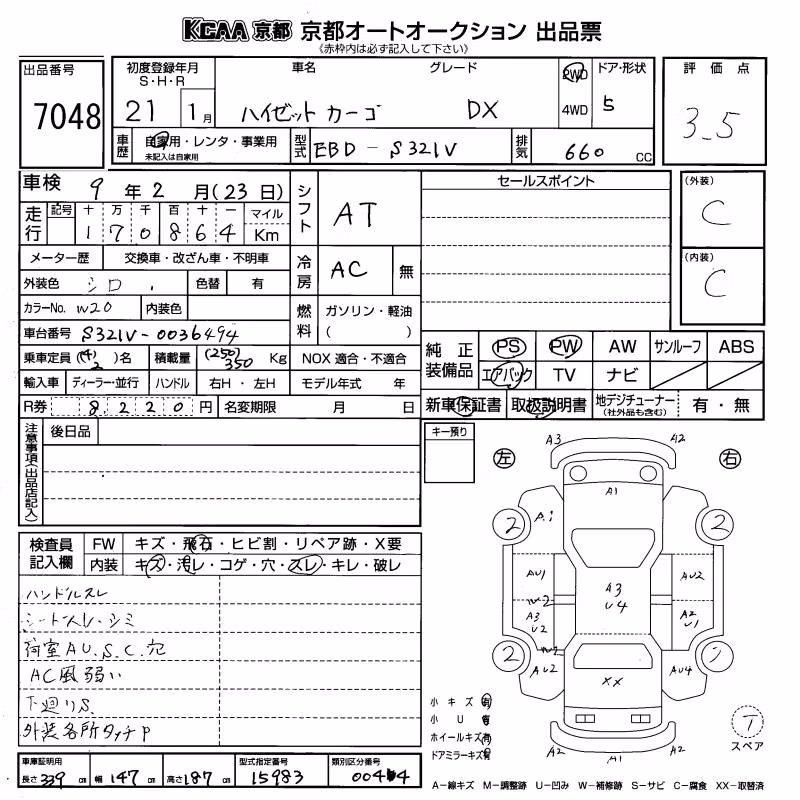 KCAA 京都 京都オートオークション 出品票
《赤枠内は必ず記入して下さい》
出品番号 7048
初度登録年月 S・H・R 21 1月
車名 ハイゼットカーゴ
グレード DX
2WD 4WD
ドア・形状 5
評価点 3.5
車歴 自家用・レンタ・事業用 未記入は自家用
型式 EBD-S321V
排気 660 CC
車検 9年2月(23日)
シフト AT
セールスポイント
(外装) C
走行 記号 十 万 千 百 十 一 マイル Km
1 7 0 8 6 4
メーター歴 交換車・改ざん車・不明車
冷房 AC 無
(内装) C
外装色 シロ 色替 有
カラーNo. W20 内装色
燃料 ガソリン・軽油 ( )
車台番号 S321V-0036494
乗車定員 (4) 2 名 積載量 (250) 350 Kg NOX 適合・不適合
純正装備品 PS PW AW サンルーフ ABS
エアバック TV ナビ
輸入車 ディーラー・並行 ハンドル 右H・左H モデル年式 年
R券 8220円 名変期限 月 日
新車保証書 取扱説明書 地デジチューナー (社外品も含む) 有・無
注意事項(出品店記入) 後日品
キー預り
左 右
A3 A2
A1
2 A.1 2
AU1 AU2
W2 A3 U4
A3 U2 A2 U1
2 AU2 XX AU4
A2 A2
検査員記入欄 FW キズ・飛石・ヒビ割・リペア跡・X要
内装 キズ・汚レ・コゲ・穴・スレ・キレ・破レ
ハンドルスレ
シートスレ・シミ
荷室AU.S.C.穴
AC風弱い
下廻りS.
外装各所タッチP
小キズ 有
小U 有
ホイールキズ有
ドアミラーキズ有
T スペア
車庫証明用 長さ 339 cm 幅 147 cm 高さ 187 cm
型式指定番号 15983
類別区分番号 0044
A-線キズ M-調整跡 U-凹み W-補修跡 S-サビ C-腐食 XX-取替済